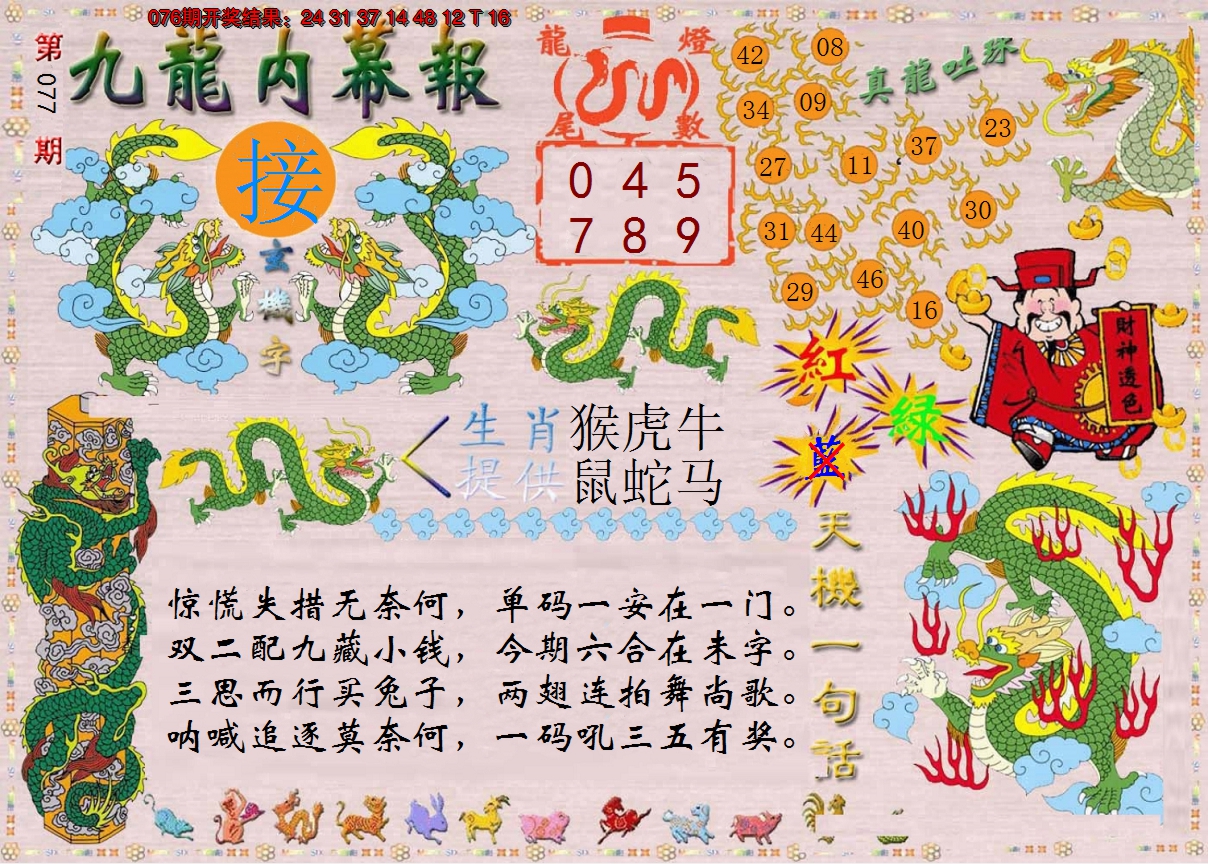 076期开奖结果：24 31 37 14 48 12 T 16
第
077
期
九龍内幕報
接
玄
機
字
龍 燈
尾 數
0 4 5
7 8 9
真龍吐珠
42
08
34
09
23
37
27
11
30
31
44
40
46
29
16
財神透色
紅
綠
藍
生肖
提供
猴虎牛
鼠蛇马
天機一句話
惊慌失措无奈何，单码一安在一门。
双二配九藏小钱，今期六合在朱字。
三思而行买兔子，两翅连拍舞尚歌。
呐喊追逐莫奈何，一码吼三五有奖。